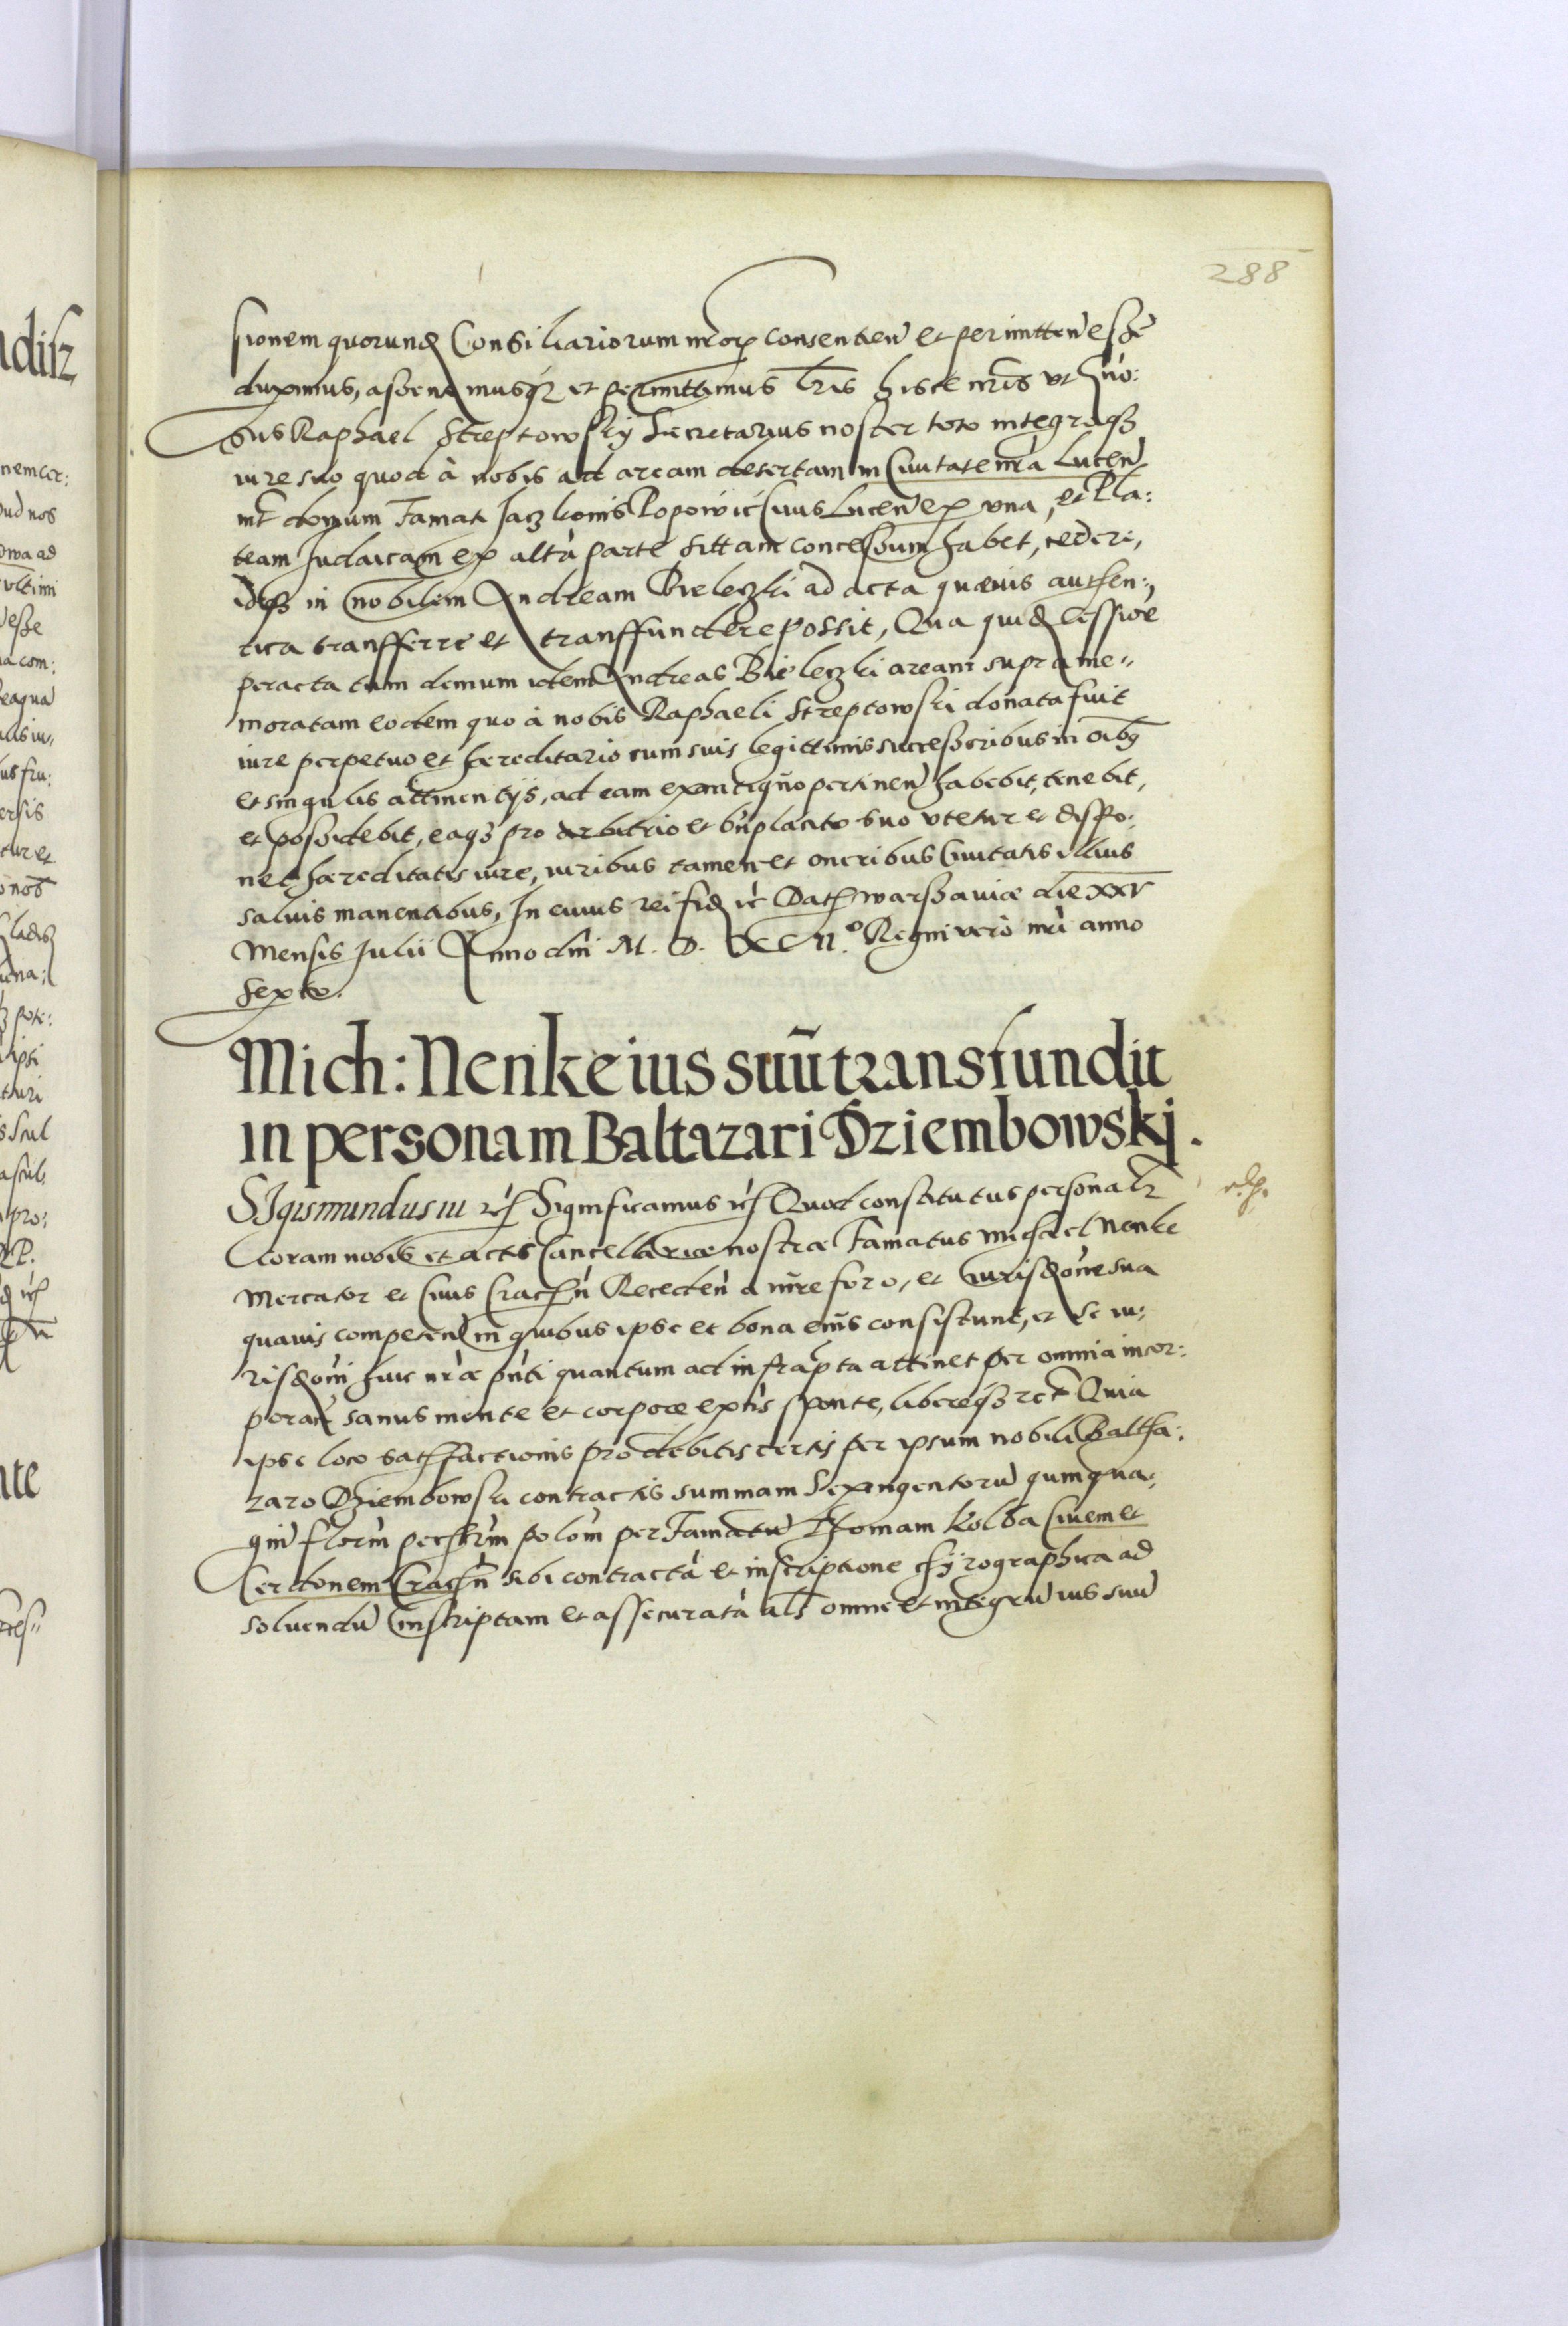 288
sionem quorund Consiliariorum nrorp consentien et permitten esse
duximus, assentimusqz et permittimus lris hisce nris vt gno:
sus Raphael Streptowskij Secretarius noster toto integroqz
iure suo quod à nobis ad aream desertam in Ciuitate nra Lucen
int domum Famati Jaczkonis Popowic Ciuis Lucen ex vna, et Pla:
team Judaicam ex altà parte sittam concessum habet, cedere,
idqz in nobilem Andream Bieleczki ad acta quævis authen:
tica transferre et transffundere possit, Qua quid cessioe
peracta tum demum idem Andreas Bieleczki aream suprame"
moratam eodem quo à nobis Raphaeli Streptowski donata fuit
iure perpetuo et hæreditario cum suis legittimis successoribus in oibg
et singulis attinentijs, ad eam exantiquo pertinen habebit, tenebit,
et possidebit, eaqz pro arbitrio et bnplacito suo vtetur et dispo:
net hæreditatis iure, iuribus tamen et oneribus Ciuitatis illius
saluis manentibus, In cuius rei fid ec Dat warssauiæ die XXV
Mensis Julii Anno dni M. D. XCII.º Regni verò nri anno
sexto.
Mich: Nenke ius suũ transfundit
in personam Baltazari Dziembowskj.
SJgismundus iii ec Significamus ec Quod constitutus personalr
coram nobis et actis Cancellariæ nostræ Famatus Michael Nenke
Mercator et Ciuis Craen Receden a iure foro, et iurisdone sua
quauis competen in quibus ipse et bona eius consistunt, et se iu:
risdoni huic nræ pnti quantum ad infrapta attinet per omnia incor:
poran sanus mente et corpore extis sponte, libereqz rct Quia
ipse loco satisfactionis pro debitis certis per ipsum nobili Baltha:
zaro Dziembowski contractis summam Sexingentoru quinqua:
gin florin pecsrim polon per Famatu Thomam Kolba Ciuem et
Cerdonem Craen sibi contractà et inscriptione chyrographica ad
soluendu inscriptam et assecuratà als omne et integru ius suu